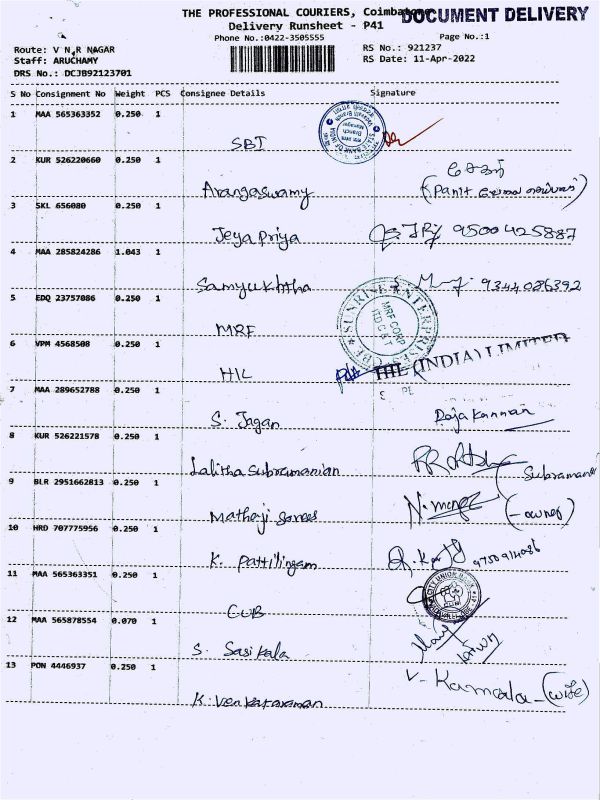 THE PROFESSIONAL COURIERS, Coimbatore
DOCUMENT DELIVERY
Delivery Runsheet - P41
Phone No.:0422-3505555
Page No.:1
Route: V N R NAGAR
RS No.: 921237
Staff: ARUCHAMY
RS Date: 11-Apr-2022
DRS No.: DCJB92123701
S No Consignment No Weight PCS Consignee Details Signature
1 MAA 565363352 0.250 1
SBI
2 KUR 526220660 0.250 1
Arangaswamy
3 SKL 656080 0.250 1
Jeya priya 9500425887
4 MAA 285824286 1.043 1
Samyukhtha 9344086392
5 EDQ 23757086 0.250 1
SUNRISE ENTERPRISES CBE
MRF CORP
MRF
6 VPM 4568508 0.250 1
HIL (INDIA) LIMITED
7 MAA 289652788 0.250 1
S. Jagan Rajakannan
8 KUR 526221578 0.250 1
Lalitha Subramanian
9 BLR 2951662813 0.250 1
Mathaji (-owner)
10 HRD 707775956 0.250 1
K. Pattilingam
11 MAA 565363351 0.250 1
CITY UNION BANK
CUB
12 MAA 565878554 0.070 1
S. Sasikala
13 PON 4446937 0.250 1
V. Kamala - (wife)
K. Venkataraman